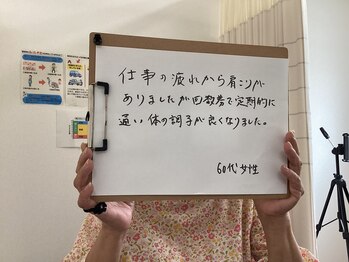 仕事の疲れから肩こりが
ありましたが回数券で定期的に
通い体の調子が良くなりました。
60代女性